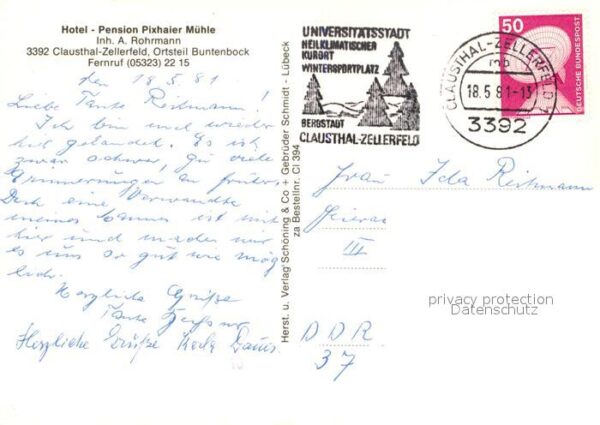 Hotel - Pension Pixhaier Mühle
Inh. A. Rohrmann
3392 Clausthal-Zellerfeld, Ortsteil Buntenbock
Fernruf (05323) 22 15
den 18.5.81
Liebe Tante Reitmann!
Ich bin mal wieder
hier gelandet. Es ist
zwar schwer, zu viele
Erinnerungen an früher.
Doch eine Verwandte
meines Mannes ist mit
hier und machen wir
es uns so gut wie mög
lich.
Herzliche Grüße
Tante
Herzliche Grüße
Herst. u. Verlag Schöning & Co + Gebrüder Schmidt - Lübeck
za Bestellnr. Cl 394
UNIVERSITÄTSSTADT
HEILKLIMATISCHER
KURORT
WINTERSPORTPLATZ
BERGSTADT
CLAUSTHAL-ZELLERFELD
CLAUSTHAL-ZELLERFELD
mb
18.5.81-13
3392
50
DEUTSCHE BUNDESPOST
Frau Ida Reitmann
III
DDR
37
privacy protection
Datenschutz